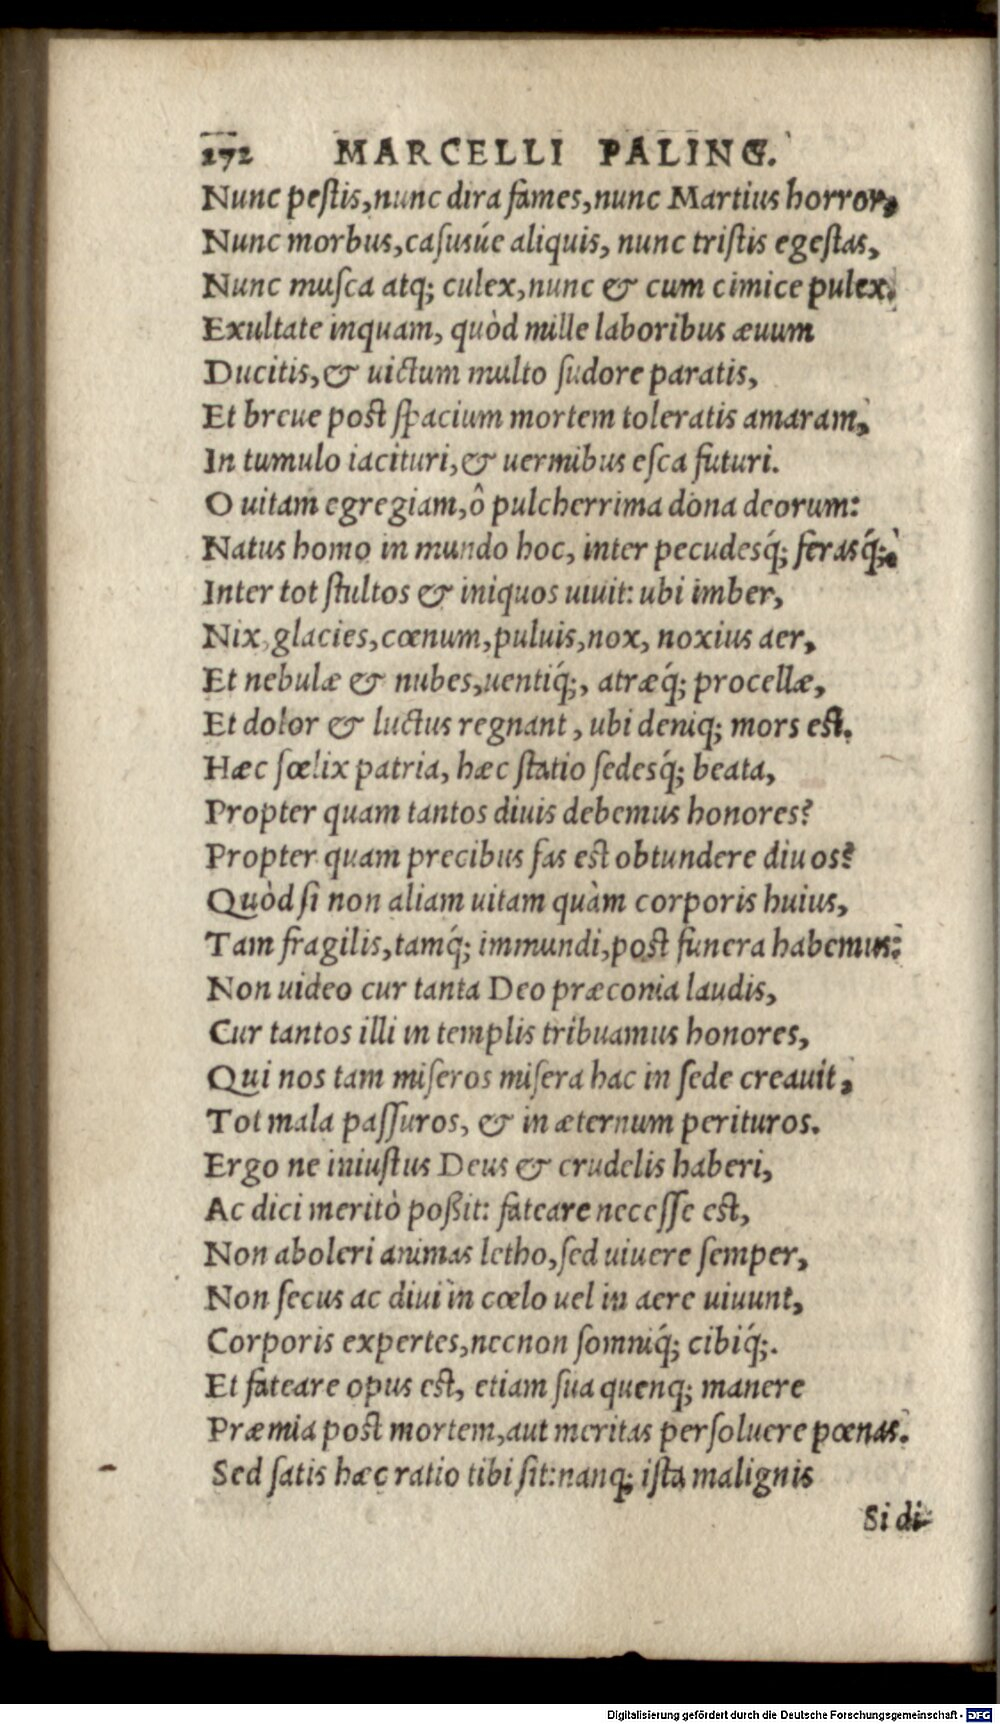 172 MARCELLI PALING.
Nunc pestis, nunc dira fames, nunc Martius horror,
Nunc morbus, casusúe aliquis, nunc tristis egestas,
Nunc musca atq; culex, nunc & cum cimice pulex.
Exultate inquam, quòd mille laboribus æuum
Ducitis, & uictum multo sudore paratis,
Et breue post spacium mortem toleratis amaram,
In tumulo iacituri, & uermibus esca futuri.
O uitam egregiam, ô pulcherrima dona deorum:
Natus homo in mundo hoc, inter pecudesq́; ferasq́;
Inter tot stultos & iniquos uiuit: ubi imber,
Nix, glacies, cœnum, puluis, nox, noxius aer,
Et nebulæ & nubes, uentiq́;, atræq́; procellæ,
Et dolor & luctus regnant, ubi deniq; mors est.
Hæc fœlix patria, hæc statio sedesq́; beata,
Propter quam tantos diuis debemus honores?
Propter quam precibus fas est obtundere diuos?
Quòd si non aliam uitam quàm corporis huius,
Tam fragilis, tamq́; immundi, post funera habemus:
Non uideo cur tanta Deo præconia laudis,
Cur tantos illi in templis tribuamus honores,
Qui nos tam miseros misera hac in sede creauit,
Tot mala passuros, & in æternum perituros.
Ergo ne iniustus Deus & crudelis haberi,
Ac dici meritò poßit: fateare necesse est,
Non aboleri animas letho, sed uiuere semper,
Non secus ac diui in cœlo uel in aere uiuunt,
Corporis expertes, necnon somniq́; cibiq́;.
Et fateare opus est, etiam sua quenq; manere
Præmia post mortem, aut meritas persoluere pœnas.
Sed satis hæc ratio tibi sit: nanq; ista malignis
Si di-
Digitalisierung gefördert durch die Deutsche Forschungsgemeinschaft - DFG